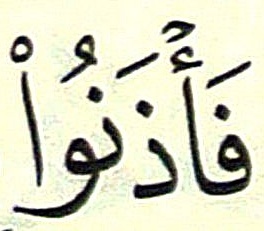 فَأْذَنُواْ